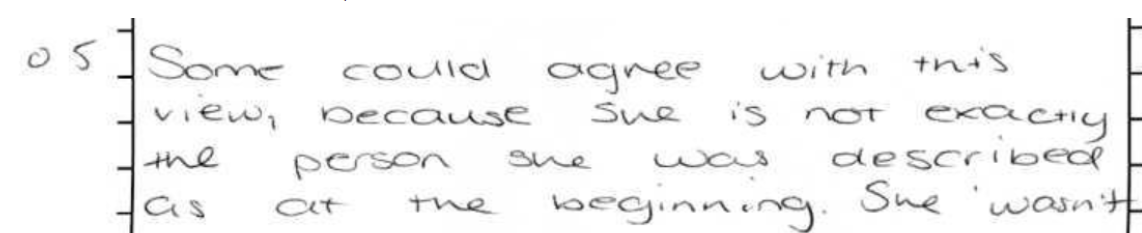 05 Some could agree with this
view, because she is not exactly
the person she was described
as at the beginning. She wasn't